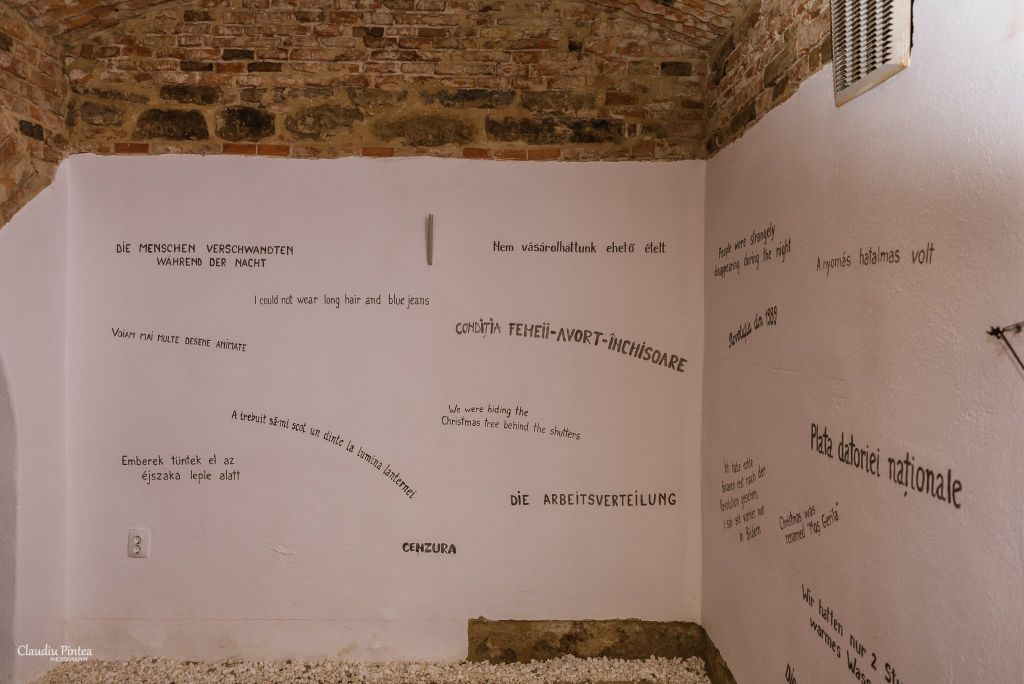 DIE MENSCHEN VERSCHWANDTEN
WÄHREND DER NACHT
Nem vásárolhattunk ehető ételt
I could not wear long hair and blue jeans
VOIAM MAI MULTE DESENE ANIMATE
CONDIȚIA FEMEII-AVORT-ÎNCHISOARE
A trebuit să-mi scot un dinte la lumina lanternei
We were hiding the
Christmas tree behind the shutters
Emberek tüntek el az
éjszaka leple alatt
DIE ARBEITSVERTEILUNG
CENZURA
People were strangely
disappearing during the night
A nyomás hatalmas volt
Revoluția din 1989
Plata datoriei naționale
Ich habe echte
Bananen erst nach der
Revolution gesehen,
sie vorher nur
in Bildern
Christmas was
renamed "Moș Gerilă"
Wir hatten nur 2
warmes
Claudiu Pintea
PHOTOGRAPHY